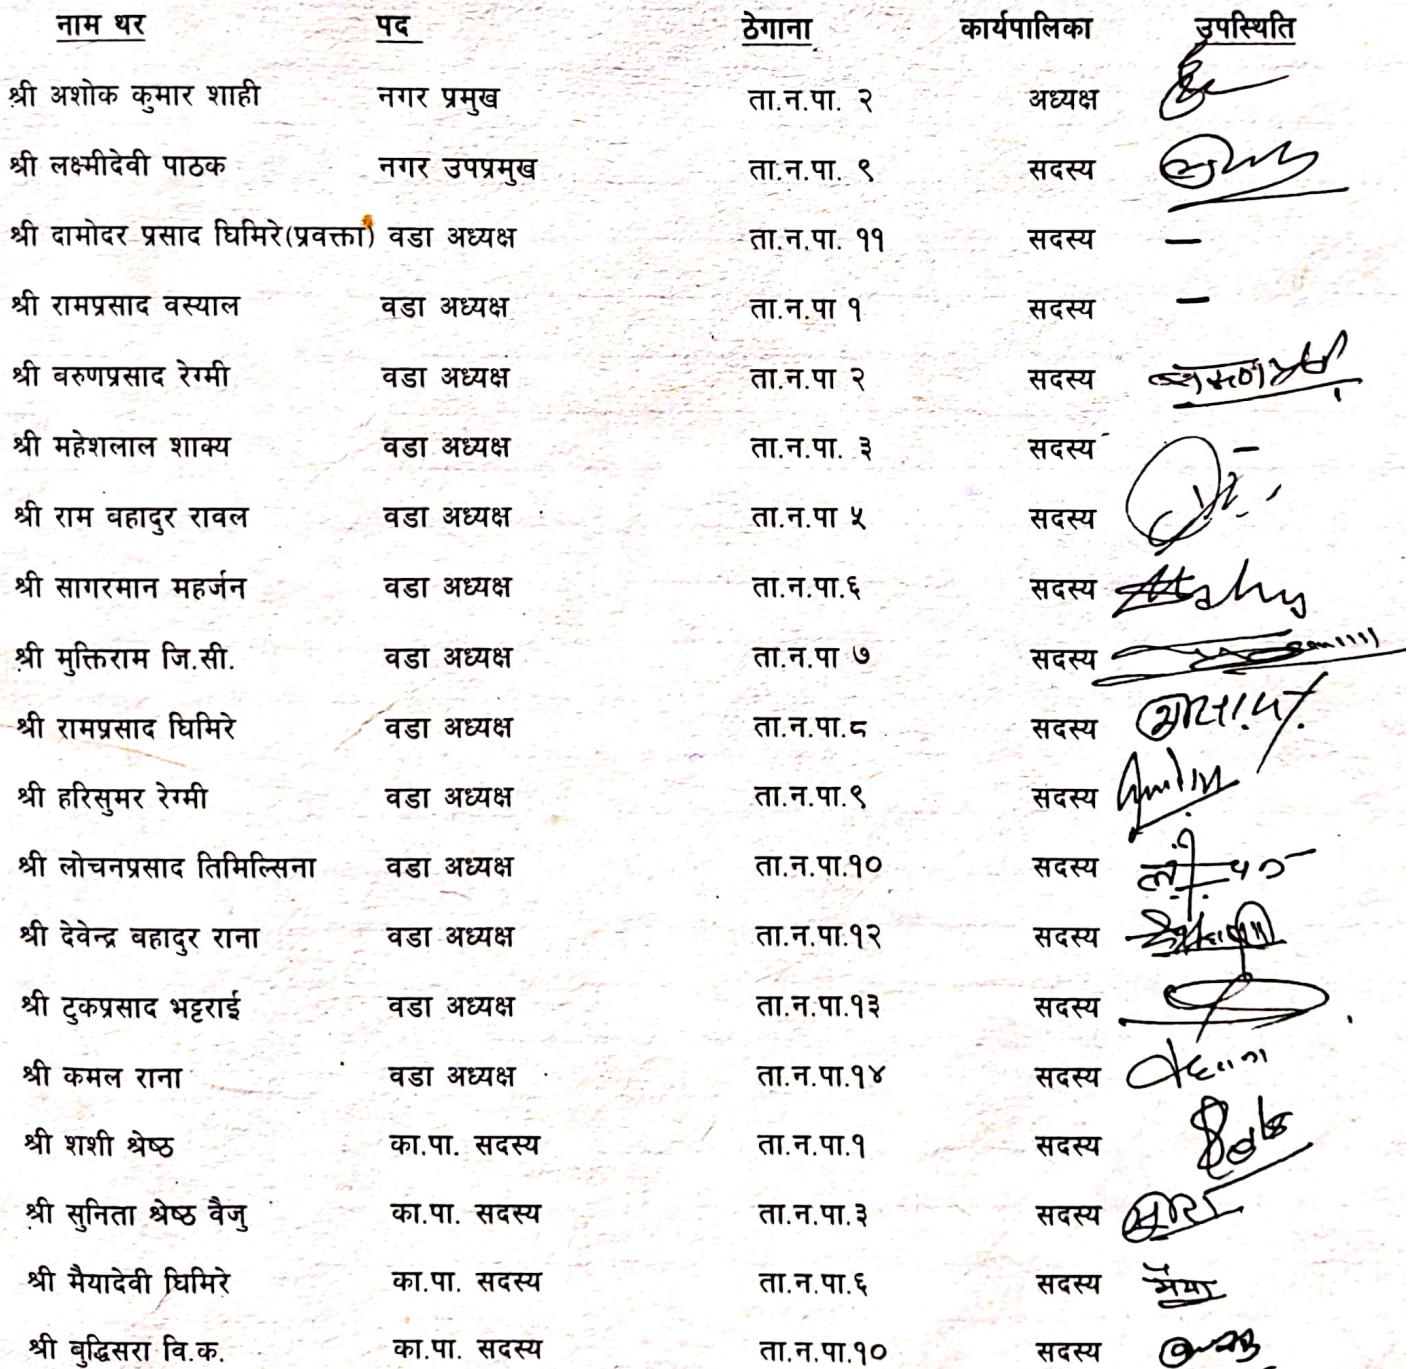 नाम थर पद ठेगाना कार्यपालिका उपस्थिति
श्री अशोक कुमार शाही नगर प्रमुख ता.न.पा. २ अध्यक्ष
श्री लक्ष्मीदेवी पाठक नगर उपप्रमुख ता.न.पा. ९ सदस्य
श्री दामोदर प्रसाद घिमिरे(प्रवक्ता) वडा अध्यक्ष ता.न.पा. ११ सदस्य —
श्री रामप्रसाद वस्याल वडा अध्यक्ष ता.न.पा १ सदस्य —
श्री वरुणप्रसाद रेग्मी वडा अध्यक्ष ता.न.पा २ सदस्य
श्री महेशलाल शाक्य वडा अध्यक्ष ता.न.पा. ३ सदस्य —
श्री राम वहादुर रावल वडा अध्यक्ष ता.न.पा ५ सदस्य
श्री सागरमान महर्जन वडा अध्यक्ष ता.न.पा.६ सदस्य
श्री मुक्तिराम जि.सी. वडा अध्यक्ष ता.न.पा ७ सदस्य
श्री रामप्रसाद घिमिरे वडा अध्यक्ष ता.न.पा.८ सदस्य
श्री हरिसुमर रेग्मी वडा अध्यक्ष ता.न.पा.९ सदस्य
श्री लोचनप्रसाद तिमिल्सिना वडा अध्यक्ष ता.न.पा.१० सदस्य
श्री देवेन्द्र बहादुर राना वडा अध्यक्ष ता.न.पा.१२ सदस्य
श्री टुकप्रसाद भट्टराई वडा अध्यक्ष ता.न.पा.१३ सदस्य
श्री कमल राना वडा अध्यक्ष ता.न.पा.१४ सदस्य
श्री शशी श्रेष्ठ का.पा. सदस्य ता.न.पा.१ सदस्य
श्री सुनिता श्रेष्ठ वैजु का.पा. सदस्य ता.न.पा.३ सदस्य
श्री मैयादेवी घिमिरे का.पा. सदस्य ता.न.पा.६ सदस्य मैया
श्री बुद्धिसरा वि.क. का.पा. सदस्य ता.न.पा.१० सदस्य